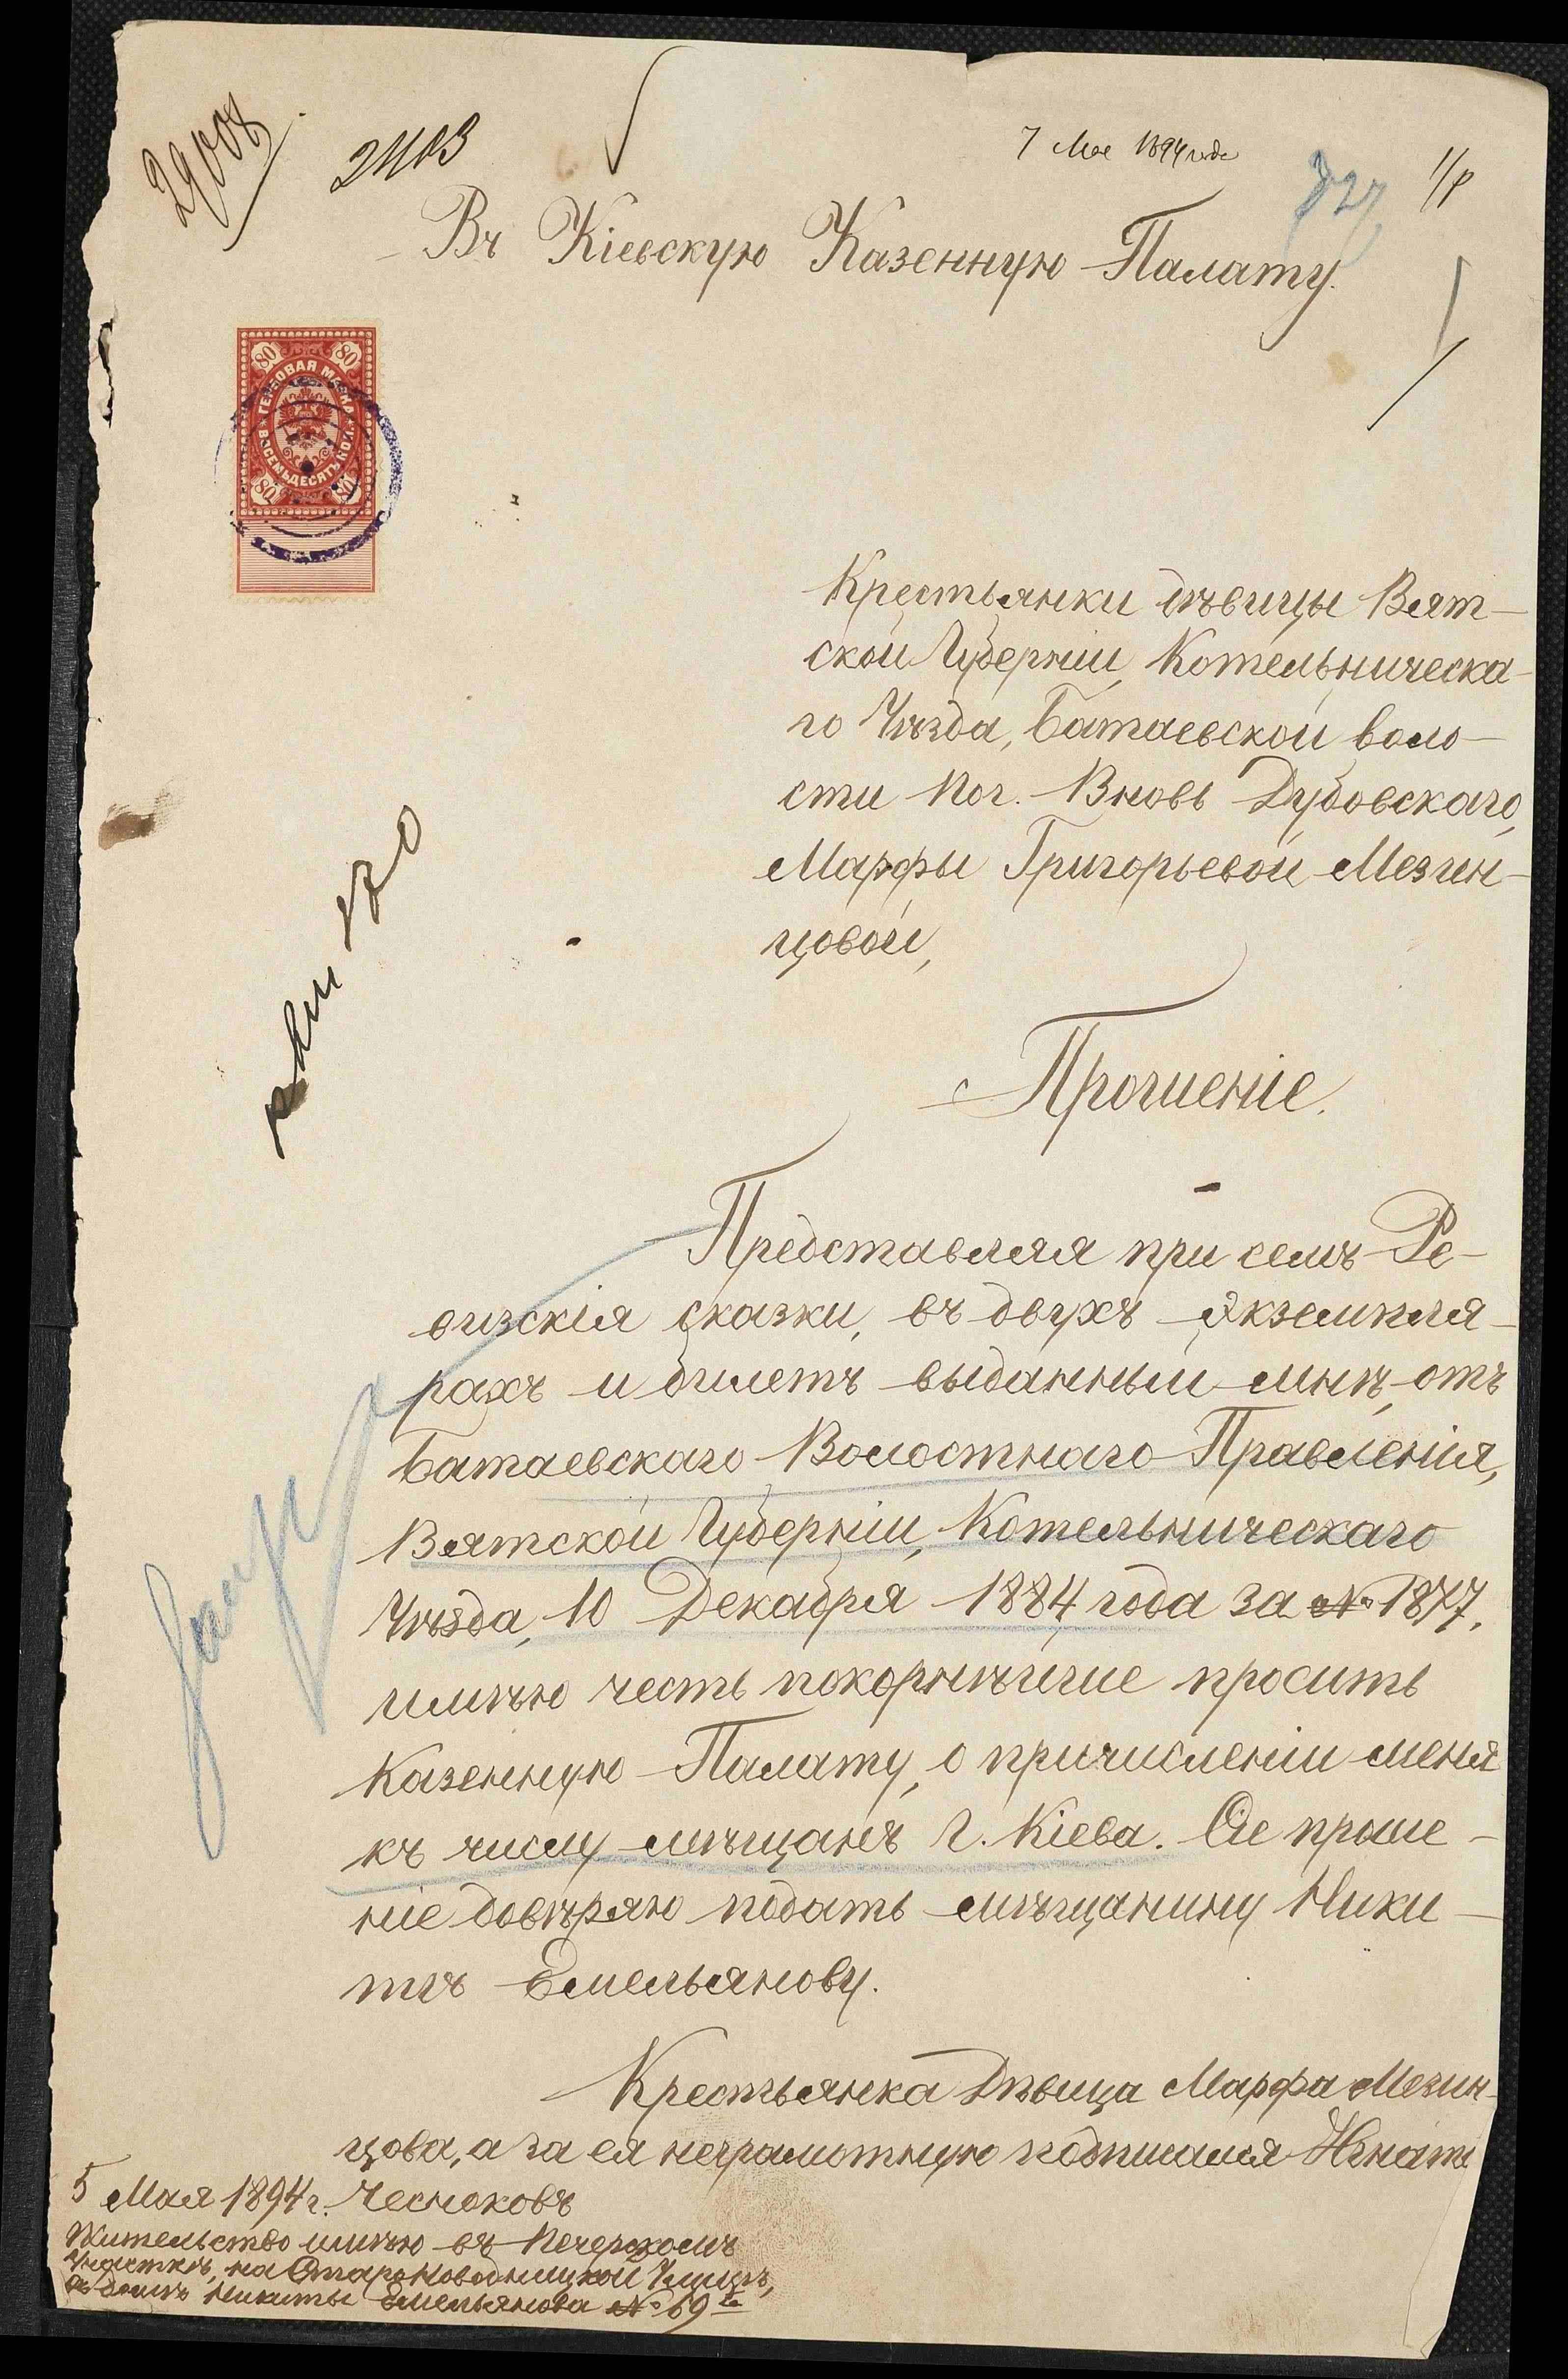 29008
2403
7 Мая 1894 года
827
Въ Кіевскую Казенную Палату.
80 80
ГЕРБОВАЯ МАРКА
ВОСЕМЬДЕСЯТЪ КОП.
80 80
Крестьянки дѣвицы Вят-
ской Губерніи, Котельническа-
го Уѣзда, Батаевской воло-
сти поч. Вновь Дубовскаго,
Марфы Григорьевой Мезен-
цовой,
Прошеніе.
Представляя при семъ Ре-
визскія сказки, въ двухъ экземпля-
рахъ и билетъ выданный мнѣ, отъ
Батаевскаго Волостнаго Правленія,
Вятской Губерніи, Котельническаго
Уѣзда, 10 Декабря 1884 года за № 1877,
имѣю честь покорнѣйше просить
Казенную Палату, о причисленіи меня
къ числу мѣщанъ г. Кіева. Сіе проше-
ніе довѣряю подать мѣщанину Ники-
тѣ Емельянову.
Крестьянка Дѣвица Марфа Мезин-
цова, а за ея неграмотную подписался Игнатій
5 Мая 1894 г. Чесноковъ
Жительство имѣю въ Печерскомъ
участкѣ, на Старонаводницкой Улицѣ,
въ домѣ Никиты Емельянова № 69